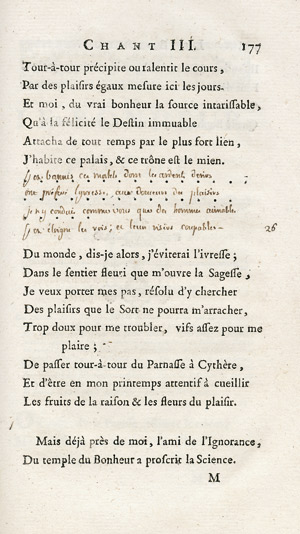 CHANT III. 177
Tour-à-tour précipite ou ralentit le cours,
Par des plaisirs égaux mesure ici les jours.
Et moi, du vrai bonheur la source intarissable,
Qu'à la félicité le Destin immuable
Attacha de tout temps par le plus fort lien,
J'habite ce palais, & ce trône est le mien.
j'en bannis ces mortels dont les ardents desirs
ont préféré l'yvresse aux douceurs du plaisirs
je n'y conduis comme vous que des hommes aimables
j'en éloigne les rois, et leurs visirs coupables. 26
Du monde, dis-je alors, j'éviterai l'ivresse;
Dans le sentier fleuri que m'ouvre la Sagesse,
Je veux porter mes pas, résolu d'y chercher
Des plaisirs que le Sort ne pourra m'arracher,
Trop doux pour me troubler, vifs assez pour me
plaire;
De passer tour-à-tour du Parnasse à Cythère,
Et d'être en mon printemps attentif à cueillir
Les fruits de la raison & les fleurs du plaisir.
Mais déjà près de moi, l'ami de l'Ignorance,
Du temple du Bonheur a proscrit la Science.
M